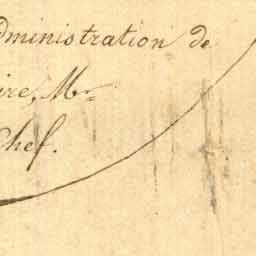 dministration de
ire, Mr
Chef.